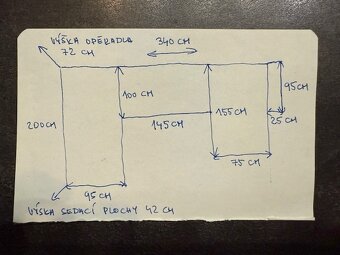 VÝŠKA OPĚRADLA
72 CM
340 CM
100 CM
95 CM
200CM
145 CM
155 CM
25 CM
75 CM
95 CM
VÝŠKA SEDACÍ PLOCHY 42 CM